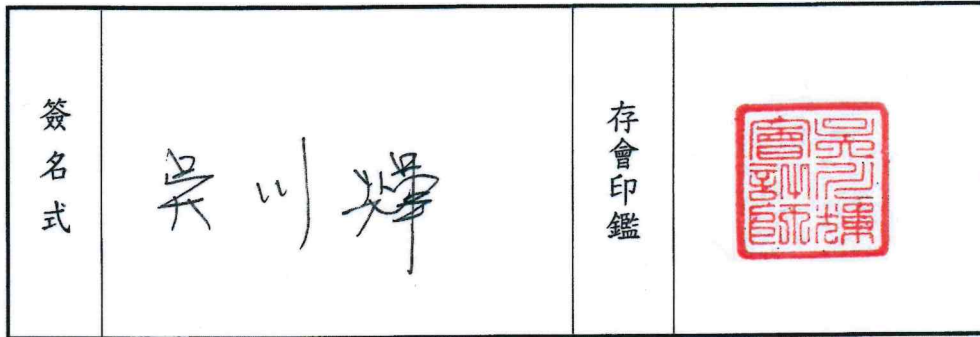 簽名式
吳川輝
存會印鑑
吳川輝
會計師